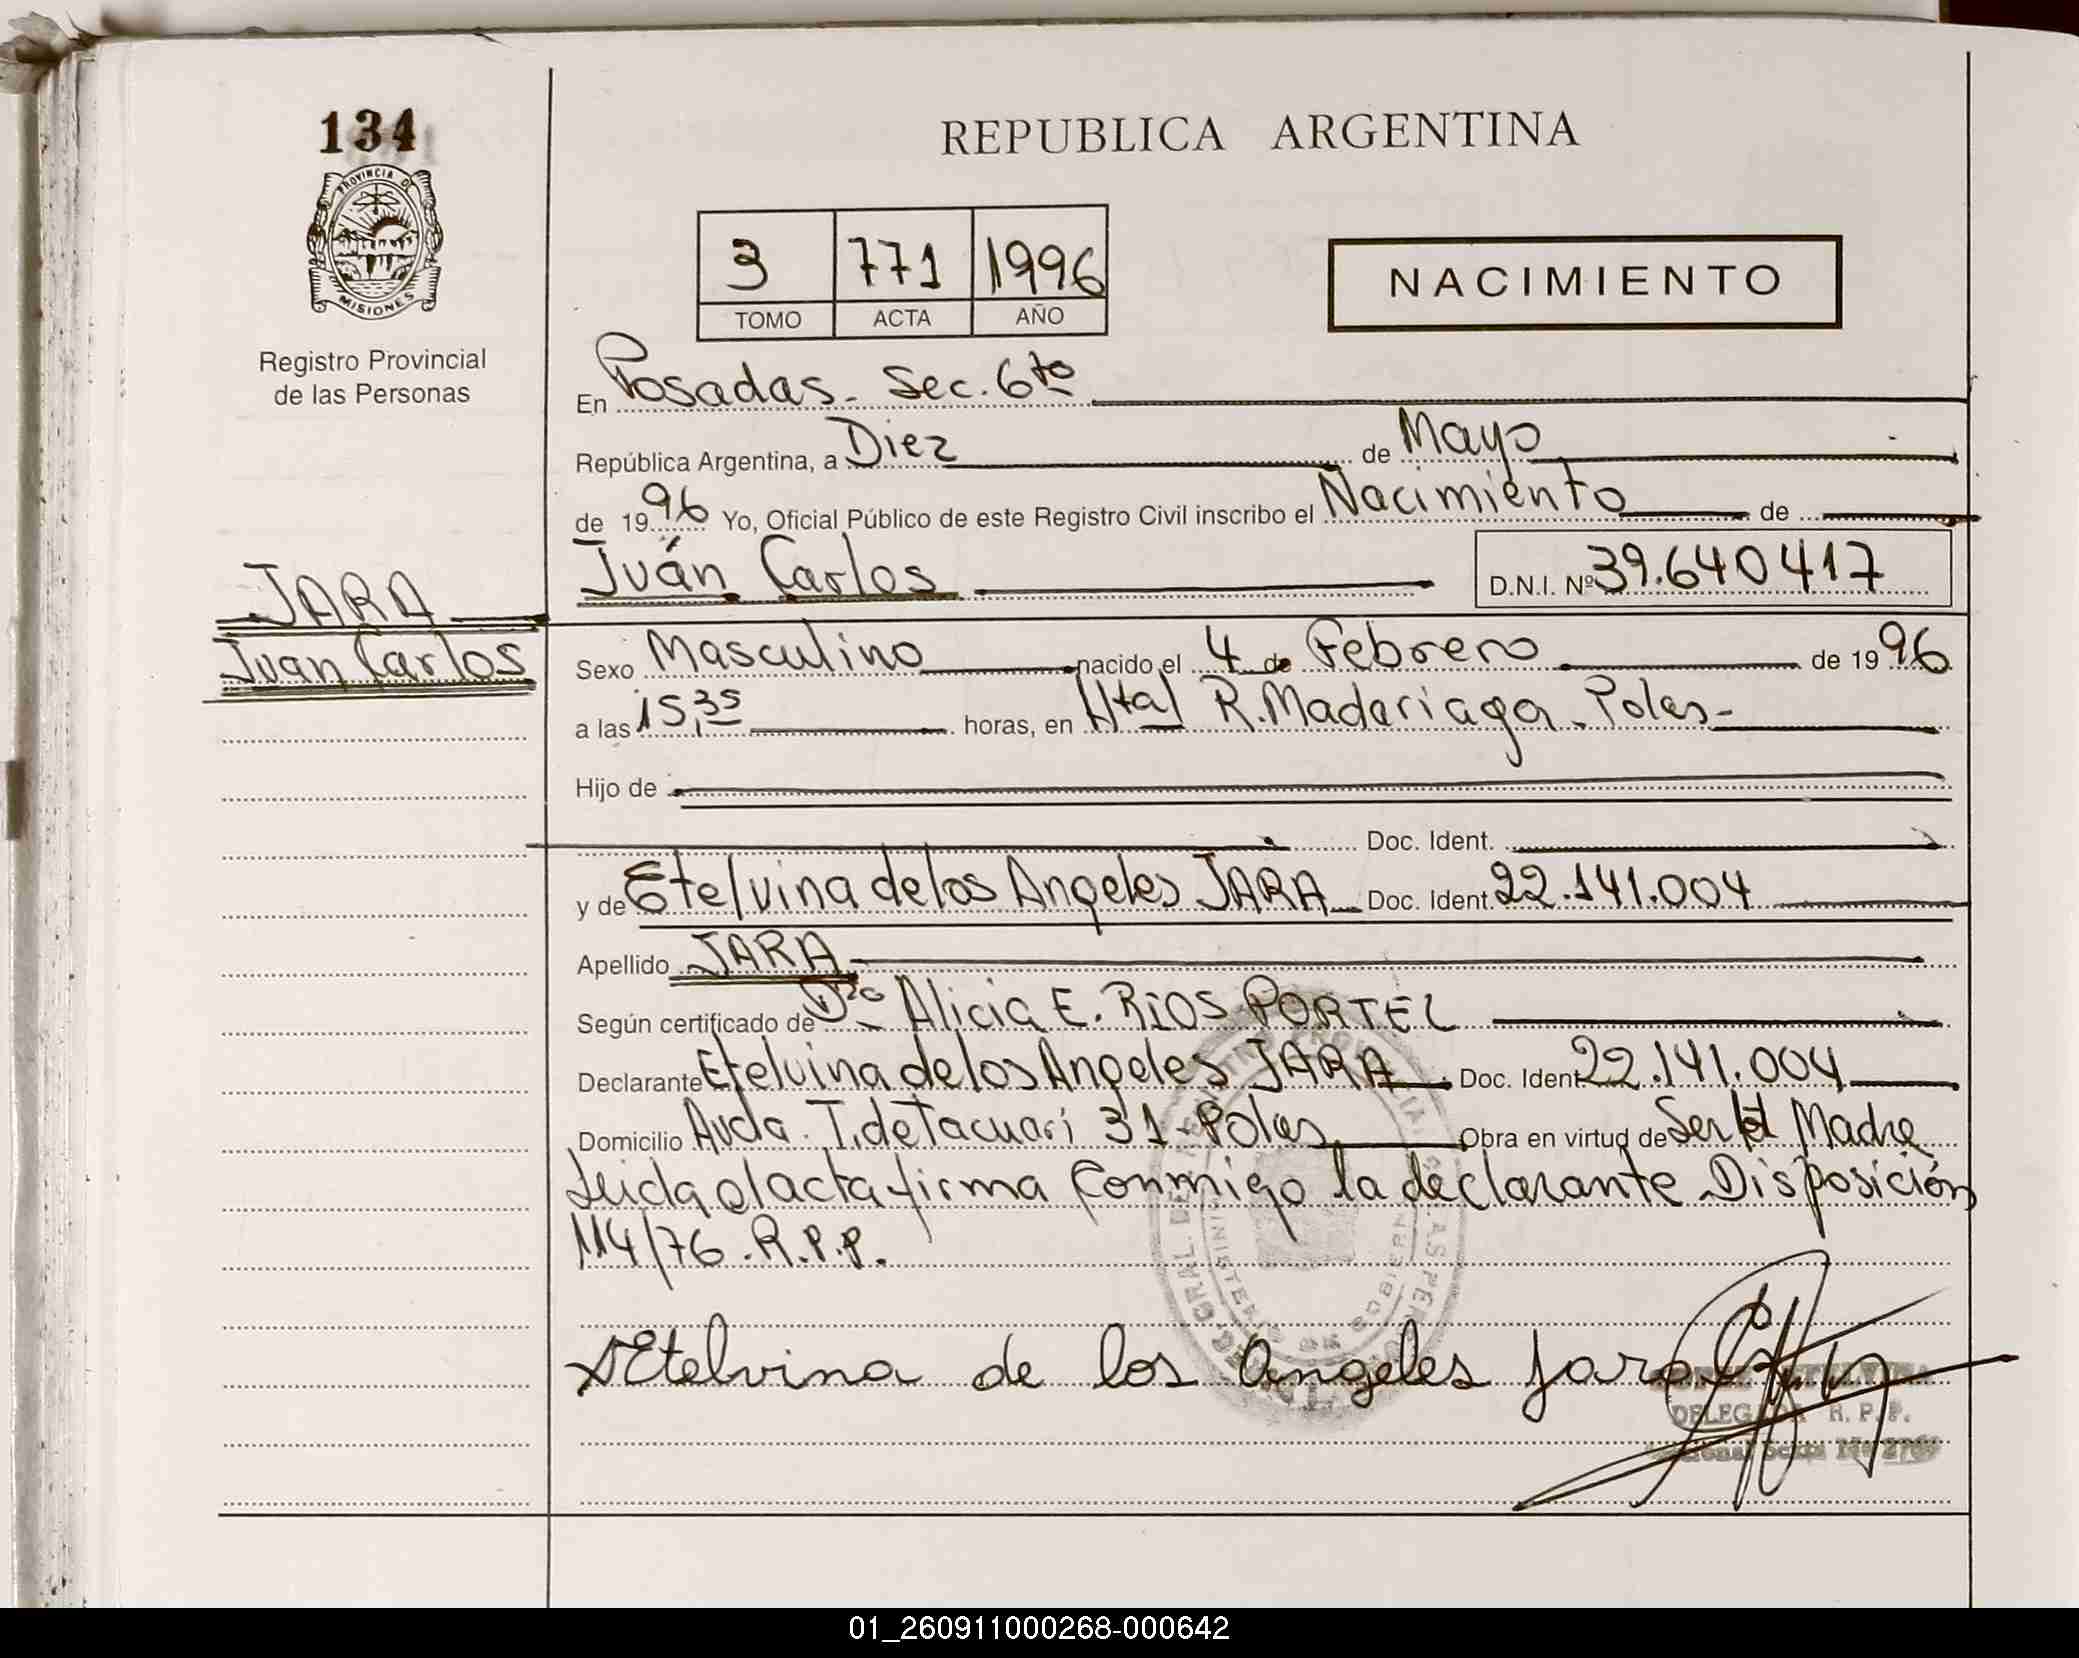 134
PROVINCIA DE
MISIONES
Registro Provincial
de las Personas
REPUBLICA ARGENTINA
3 771 1996
TOMO ACTA AÑO
NACIMIENTO
En Posadas - Sec. 6ta
República Argentina, a Diez de Mayo
de 1996 Yo, Oficial Público de este Registro Civil inscribo el Nacimiento de
Juán Carlos D.N.I. Nº 39.640417
JARA
Juan Carlos
Sexo Masculino nacido el 4 de Febrero de 1996
a las 15,35 horas, en Htal R. Madariaga - Pdas -
Hijo de
Doc. Ident.
y de Etelvina de los Angeles JARA Doc. Ident. 22.141.004
Apellido JARA
Según certificado de Dra Alicia E. RIOS PORTEL
Declarante Etelvina de los Angeles JARA Doc. Ident. 22.141.004
Domicilio Avda. T. de Tacuarí 31 - Pdas Obra en virtud de Ser la Madre
Leida el acta firma conmigo la declarante Disposición
114/76. R.P.P.
Etelvina de los Angeles Jara
DELEGADA R. P. P.
01_260911000268-000642